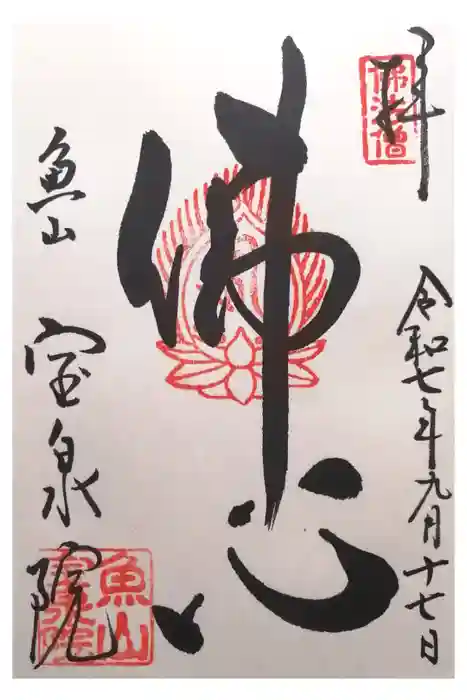 奉拝
佛法僧
令和七年九月十七日
佛心
魚山
宝泉院
魚山
宝泉院